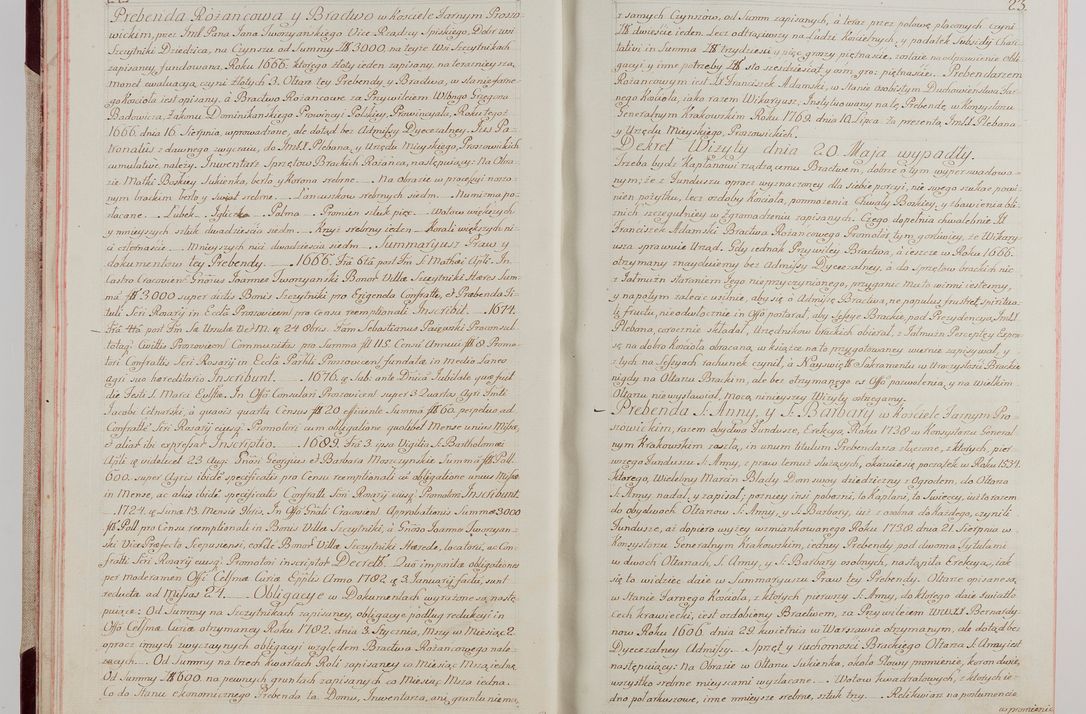 Prebenda Rożancowa y Bractwo w Kościele Farnym Proszo-
wickim, przez Jmć Pana Jana Tworzyanskiego Vice Radzcy Spiskiego, Dobr wsi
Szczytniki Dziedzica, na Czynszu od Summy 3000 na teyże Wsi Szczytnikach
zapisaney fundowana. Roku 1666. którego złoty ieden zapisany, na teraznieyszą
monet ewaluacyą czyni złotych 3. Ołtarz tey Prebendy y Bractwa, w stanie farne-
go Kościoła iest opisany, à Bractwo Rożancowe za Przywileiem Wlbnego Grzegorza
Badowicza, Zakonu Dominikańskiego Prowincyi Polskiey, Prowincyała, Roku tegoż
1666. dnia 16 Sierpnia, wprowadzone, ale dotąd bez Admissyi Dyecezalney. Jus Pa-
tronatûs z dawnego zwyczaiu, do Jmć X. Plebana, y Urzędu Mieyskiego, Proszowickich
cumulative należy. Inwentarz Sprzętow Brackich Rożańca, następuiący: Na Obra-
zie Matki Boskiey Sukienka, berło, y Korona srebrne Na Obrazie w processyi noszo-
nym brackim berło y swiat srebrne Łancuszkow srebrnych siedm. Numizma po-
złacane. Lubek. Iglicka Palma Promien sztuk pięć. Wotow większych
y mnieyszych sztuk dwadzieścia siedm Krzyż srebrny ieden Korali większych ni-
ci ośmnaście Mnieyszych nici dwadzieścia siedm. Summaryusz Praw y
dokumentow tey Prebendy 1666. Fria 6ta post Fm S. Mathiae Apli. In
Castro Cracovien: Gnosus Joannes Tworzyanski Bonor Villae Szczytniki Haeres Sum-
mâ 3000 super dictis Bonis Szczytniki pro Erigenda Confratte, et Praebenda Ti-
tuli Scri Rosarij in Ecclâ Proszovicen: pro censu reemptionali Inscribit 1674.
Fria 4ta post Fm Sae Ursulae V. et M. q. 24 8bris. Fam Sebastianus Paięwski Proconsul
totaq Civitis Proszovicen: Communitas pro Summa 115 Censu Annui 8 Pomo-
tori Confrattis Scri Rosarij in Ecclâ Parlli Proszovicen: fundatae in medio Laneo
agri suo hereditario Inscribunt 1676. q Sab: ante Dnica Jubilate quae fuit
die Festi S. Marci Evlltae. In Offo Consulari Proszovicen: super 3 Quartas Agri Fmti
Jacobi Celnarski, à quavis quarta Census 20 efficiente Summâ 60. perpetuo ad
Confratte Scri Rosarij eiusq: Promotori cum obligatione quolibet Mense unius Missae
et aliat ibi expressar Inscriptio 1689. Fria 3. ipsa Vigilia S. Bartholomaei
Apli q videlicet 23 Aug: Gnosi Georgius et Barbara Morzynskie Summâ Poll.
600. super Agris ibide specificatis pro Censu reemptionali cu obligatione unius Missae
in Mense, ac aliis ibide specificatis Confratti Scri Rosarij eiusq Promotori Inscribunt.
1724. q Lunae 13. Mensis 9bris. In Offo Grali Cracovien: Approbationis Summae 3000
Poll: pro Censu reemptionali in Bonis Villae Szczytniki, à Gnoso Joanne Tworzyan-
ski Vice Praefecto Scepusiensi, eorde Bonor Villae Szczytniki Haerede, locatorû, ac Con-
fratti Scri Rosarij eiusq: Promotori inscriptor Decretû. Quo impositae obligationes
per moderamen Offi Celsmae Curiae Eplis Anno 1782. q 3 Januarij factû, sunt
reducta ad Missas 24. Obligacye w Dokumentach wyrażone są nastę-
puiące: Od Summy na Szczytnikach zapisaney, obligacye podług redukcyi in
Offo Celsmae Curiae otrzymaney Roku 1782. dnia 3. Stycznia, Mszy w Miesiąc 2.
oprocz innych zwyczaynych obligacyi względem Bractwa Rożancowego nale-
żących. Od Summy na trzech kwartach Roli zapisaney co Miesiąc Msza iedna.
Od Summy 600. na pewnych gruntach zapisanych co Miesiąc Msza iedna.
Co do Stanu ekonomicznego Prebenda ta Domu, Inwentarza, ani gruntu niema,
23.
z samych Czynszow, od Summ zapisanych, à teraz przez połowę płaconych, czyni
dwieście ieden. Lecz odtrąciwszy na Ludzi Kościelnych, y podatek Subsidij Chari-
tativi in Summa trzydzieści y pięc, groszy piętnaście, zostaie na odprawienie obli-
gacyi y inne potrzeby sto szesdziesiąt y ośm, gro: piętnascie. Prebendarzem
Rożancowym iest X. Franciszek Adamski, w Stanie osobistym Duchowieństwa Far-
nego Kościoła, iako razem Wikaryusz, Instytuowany na tę Prebendę, w Konsystorzu
Generalnym Krakowskim Roku 1769. dnia 10. Lipca za prezentą Jmć X. Plebana
y Urzędu Mieyskiego, Proszowickich.
Dekret Wizyty dnia 20 Maja wypadły.
Trzeba bydź Kapłanowi rządzącemu Bractwem, dobrze o tym wyperswadowa-
nym; że z Funduszu oprocz wyznaczoney dla siebie porcyi, nie swego szukac powi-
nien pożytku, lecz ozdoby Kościoła, pomnożenia Chwały Boskiey, y zbawienia bli-
znich szczegulniey w zgromadzeniu zapisanych. Czego dopełnia chwalebnie X.
Franciszek Adamski Bractwa Rożancowego Promotor, tym gorliwiey, że Wikary-
usza sprawuie Urząd. Gdy iednak Przywiley Bractwa, ieszcze w Roku 1666.
otrzymany znayduiemy bez Admissyi Dyecezalney, à do sprzętow brackich nic
z Iałmużn staraniem Jego nieprzyczynionego, przyganić mu to winni iestesmy,
y napotym zaleca usilnie, aby się o Admissę Bractwa, ne populus frustret spiritua-
li fructu, nieodwłocznie in Offo postarał, aby Sessye Brackie, pod Prezydencyą Jmć X.
Plebana, corocznie składał, Urzędnikow brackich obierał, z Iałmużn Percepty, Expen-
sę na dobro Kościoła obracaną, w książce na to przygotowaney wiernie zapisywał, y
z tych na Sessyach rachunek czynił, à Nayswięt: Sakramentu w Uroczystości Brackie
nigdy na Ołtarzu Brackim, ale bez otrzymanego ex Offo pozwolenia, y na wielkim
Ołtarzu nie wystawiał, mocą ninieyszey Wizyty ostrzegamy.
Prebenda S. Anny, y S. Barbary w Kościele Farnym Pro-
szowickim, razem obydwa Fundusze, Erekcyą Roku 1738 w Konsystorzu General-
nym Krakowskim zaszłą, in unum titulum Prebendarza złączone, z ktorych, pier-
wszego Funduszu S. Anny, z praw temuż służących, okazuie się początek w Roku 1534.
ktorego, Wielebny Marcin Blady Dom swoy dziedziczny z Ogrodem, do Ołtarza
S. Anny nadał, y zapisał, pozniey insi pobożni, to Kapłani, to Swieccy, iuż to razem
do obydwoch Ołtarzow S. Anny, y S. Barbary, iuż z osobna do każdego, czynili
Fundusze, aż dopiero wyżey wzmiankowanego Roku 1738. dnia 21. Sierpnia w
Konsystorzu Generalnym Krakowskim, iedney Prebendy pod dwoma Tytułami
w dwoch Ołtarzach, S. Anny, y S. Barbary osobnych, nastąpiła Erekcya, iak
się to widziec daie w Summaryuszu Praw tey Prebendy. Ołtarze opisane są
w Stanie Farnego Kościoła, z ktorych pierwszy S. Anny, do ktorego daie swiatło
Cech krawiecki, iest ozdobiony Bractwem, za Przywileiem WW. XX. Bernardy-
now Roku 1606. dnia 29. kwietnia w Warszawie otrzymanym, ale dotąd bez
Dyecezalney Admissy. Sprzęt y ruchomości Brackiego Ołtarza S. Anny iest
następuiący: Na Obrazie w Ołtarzu Sukienka, około Głowy promienie, koron dwie,
wszystko srebrne mieyscami wyzłacane. Wotow kwadratowych, z ktorych ie-
dno półarkuszowe, inne mnieysze srebrne, sztuk trzy. Relikwiarz na postumencie
w promienie